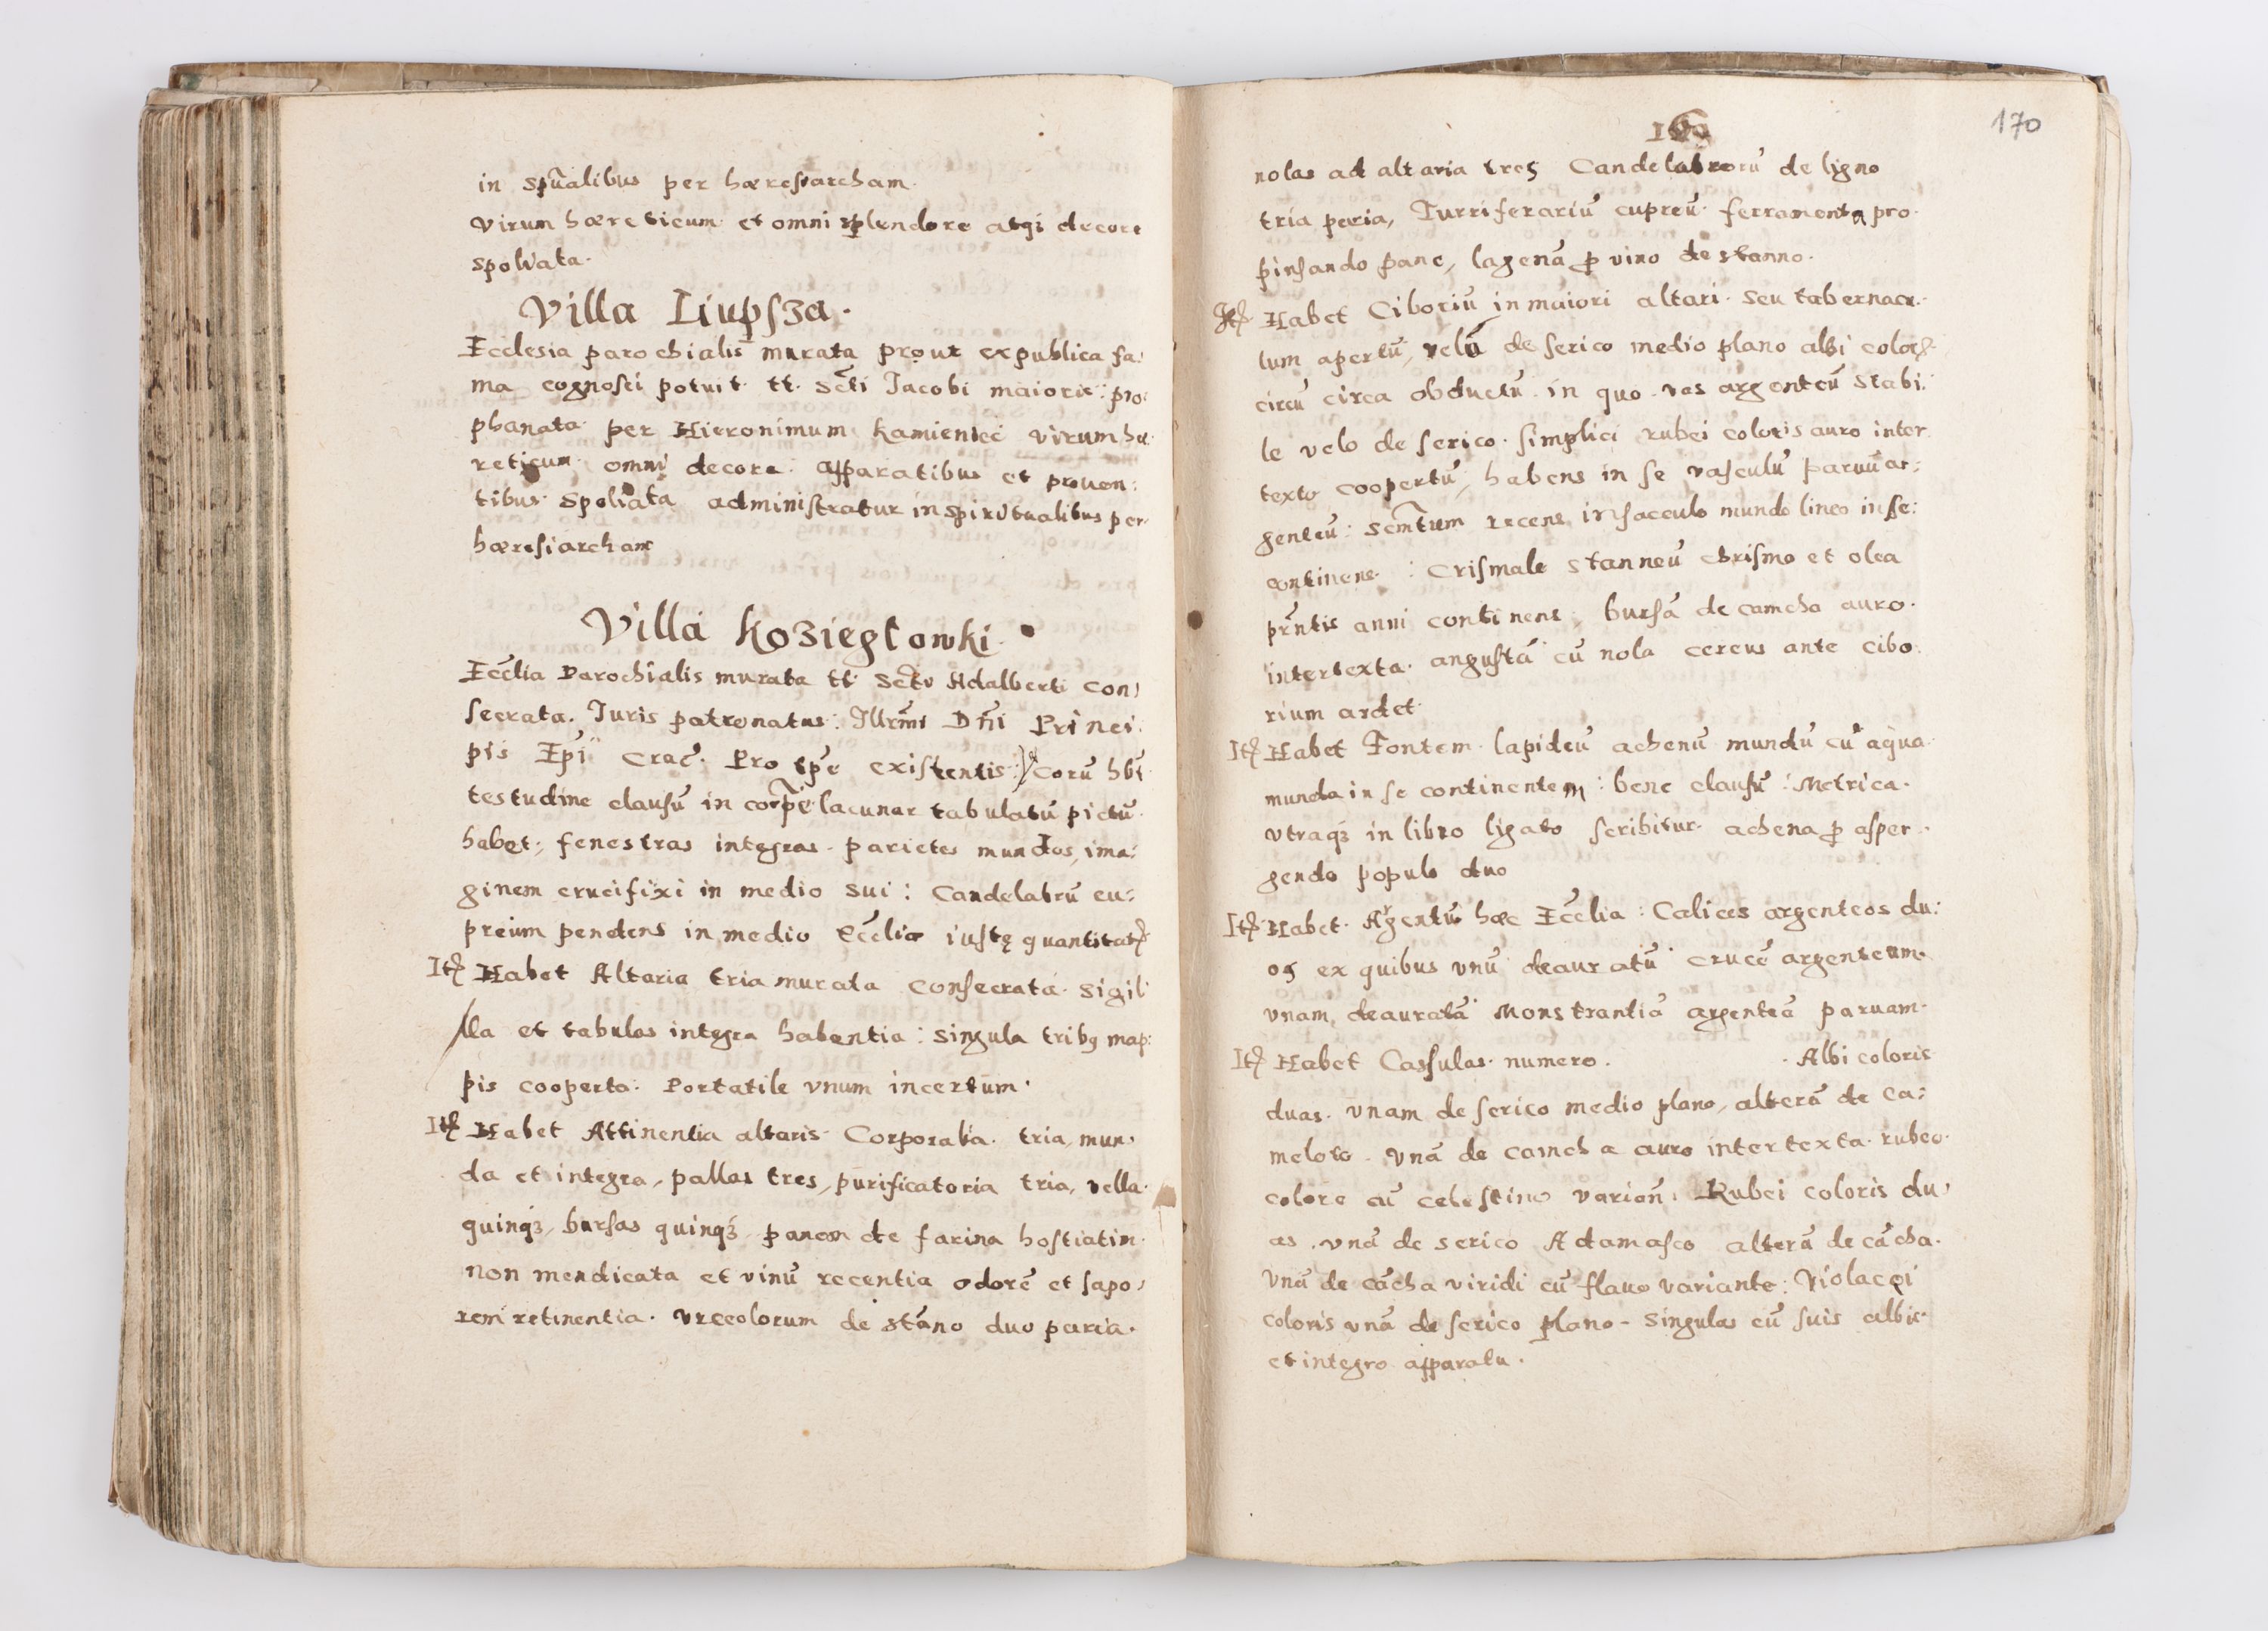 in spũalibus per hæresiarcham
virum hæreticum et omni splendore atqȝ decore
spoliata.
Villa Liupsza.
Ecclesia parochialis murata prout ex publica fa:
ma cognosci potuit tt. Scti Jacobi maioris: pro:
phanata per Hieronimum Kamieniec virum hæ
reticum omni decore apparatibus et proven:
tibus spoliata administratur in spiritualibus per
hæresiarcham
Villa Kozieglowki.
Ecclia Parochialis murata tt Scto Adalberti con,
secrata. Juris patronatus: Illrmi Dñi Princi
pis Epi Crac. Pro tpe existentis: corũ hbt
testudine clausũ in corpe lacunar tabulatũ pictũ
habet, fenestras integras. parietes mundos, ima:
ginem crucifixi in medio sui: Candelabrũ cu:
preum pendens in medio Ecclie iustę quantitat
It Habet Altaria tria murata consecrata. sigil
lla et tabulas integra habentia: singula tribȝ map:
pis cooperta. Portatile vnum incertum.
It Habet Attinentia altaris Corporalia. tria, mun,
da et integra, pallas tres, purificatoria tria, vella.
quinqȝ, bursas quinqȝ panem de farina hostiatim
non mendicata et vinũ recentia odorẽ et sapo,
rem retinentia. Vrceolorum de stãno duo paria.
170
nolas ad altaria tres Candelabrorũ de ligno
tria paria, Turriferariũ cupreũ ferramenta pro
pinsando pane, lagenã p vino de stanno.
It Habet Ciboriũ in maiori altari seu tabernac
lum apertũ, velũ de serico medio plano albi color
circũ circa obductũ in quo vas argenteũ stabi:
le velo de serico simplici rubei coloris auro inter
texto coopertũ, habens in se vasculũ paruũ ar:
genteũ: Scmtum recens in sacculo mundo lineo in se:
continens: Crismale stanneũ chrismo et olea
prñtis anni continens, bursã de camcha auro
intertexta. angustã cũ nola cereus ante cibo
rium ardet
It Habet Fontem lapideũ achenũ mundũ cũ aqua
munda in se continentem: bene clausũ: Metrica
vtraqȝ in libro ligato scribitur. achena p asper
gendo populo duo
It Habet Argentũ hæc Ecclia: Calices argenteos du:
os ex quibus vnũ deauratũ crucẽ argenteum
vnam, deauratã Monstrantiã argenteã paruam
It Habet Cassulas numero. Albi coloris
duas. vnam de serico medio plano, alterã de ca:
meloto. vnã de camcha auro intertexta rubeo
colore cũ celestino varion. Rubei coloris du,
as, vnã de serico Adamasco alterã de cãcha.
Vnã de cãcha viridi cũ flauo variante: Violacei
coloris vnã de serico plano - singulas cũ suis albis
et integro apparatu.